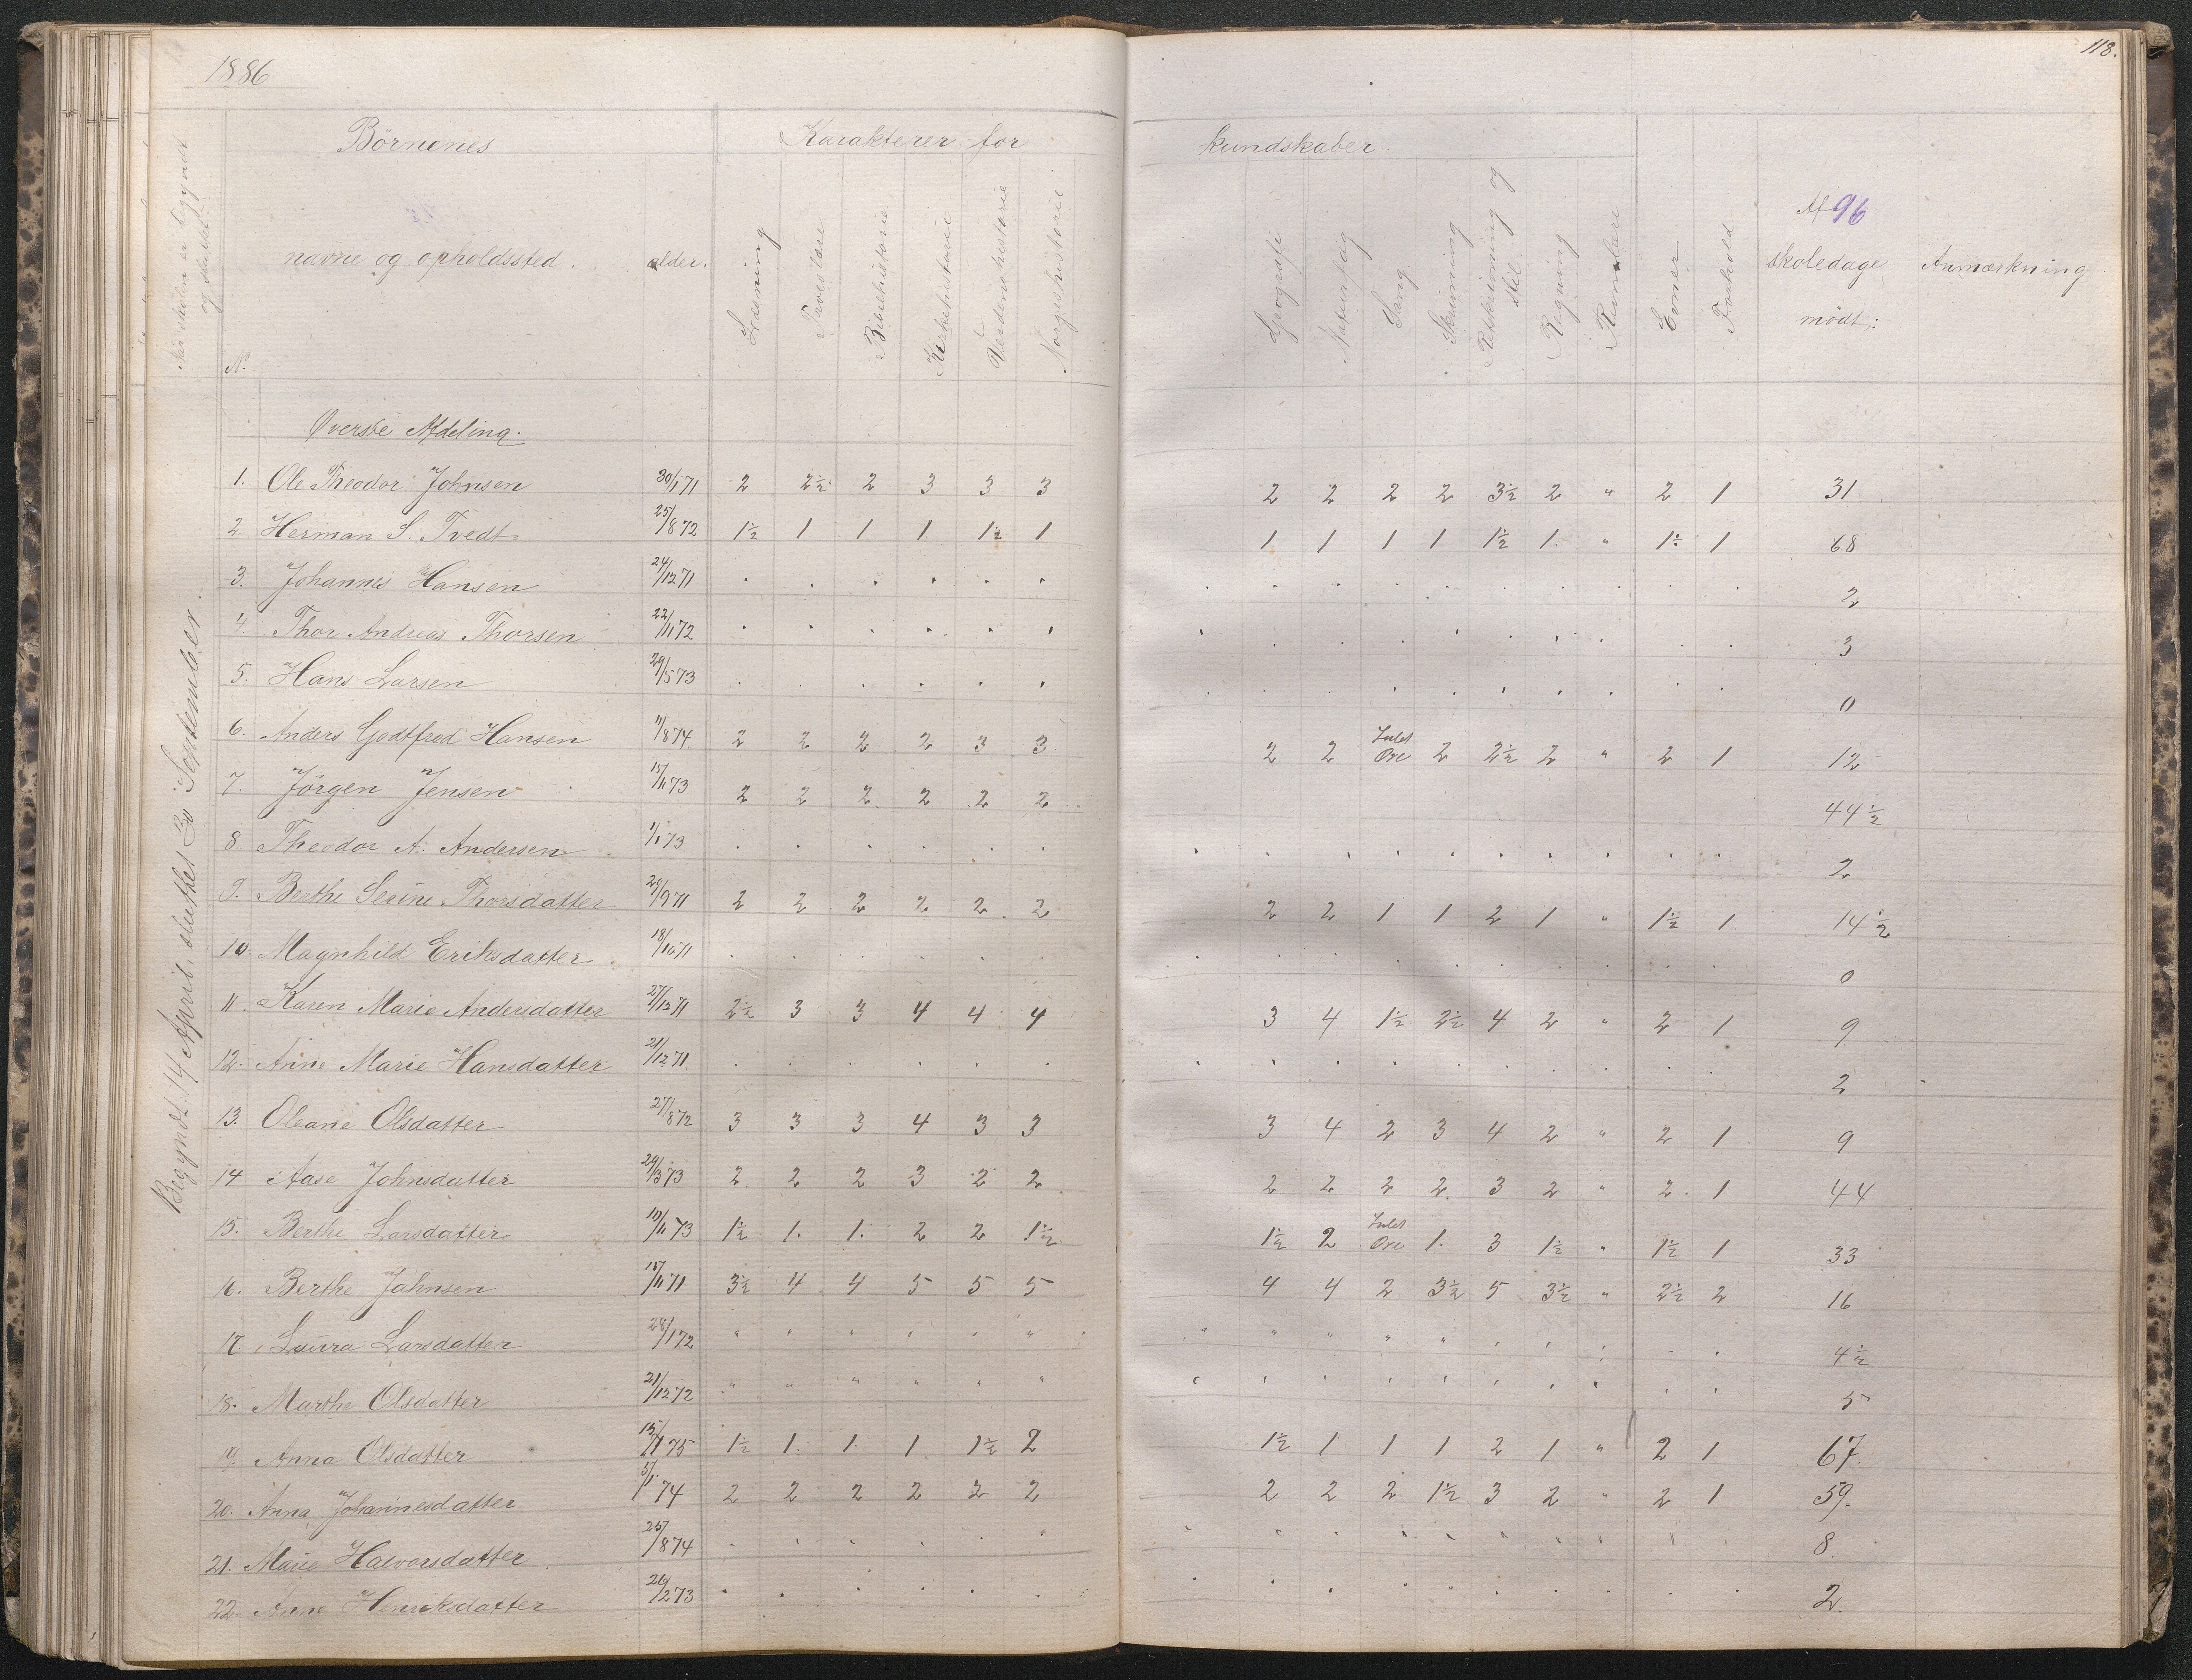 1886
118.
Børnenes
Karakterer for
kundskaber.
Når skolen er begyndt og sluttet.
No
navne og opholdssted.
alder.
Læsning
Troeslære
Bibelhistorie
Kirkehistorie
Verdenshistorie
Norgeshistorie
Geografi
Naturfag
Sang
Skrivning
Retskrivning og Stil
Regning
Rumlære
Evner
Forhold
Af 96 skoledage mødt:
Anmærkning
Begyndt 14 April, sluttet 30 September.
Øverste Afdeling.
1. Ole Theodor Johnsen 30/1 71 2 2½ 2 3 3 3 2 2 2 2 3½ 2 " 2 1 31
2. Herman S. Tvedt 25/8 72 1½ 1 1 1 1½ 1 1 1 1 1 1½ 1 " 1½ 1 68
3. Johannes Hansen 24/12 71 2
4. Thor Andreas Thorsen 22/11 72 3
5. Hans Larsen 29/5 73 0
6. Anders Godtfred Hansen 11/8 74 2 2 2 2 3 3 2 2 Intet Øre 2 2½ 2 " 2 1 12
7. Jörgen Jensen 15/11 73 2 2 2 2 2 2 44½
8. Theodor A. Andersen 1/1 73 2
9. Berthe Serine Thorsdatter 28/9 71 2 2 2 2 2 2 2 2 1 1 2 1 " 1½ 1 14½
10. Magnhild Eriksdatter 18/10 71 0
11. Karen Marie Andersdatter 27/12 71 2½ 3 3 4 4 4 3 4 1½ 2½ 4 2 " 2 1 9
12. Anne Marie Hansdatter 21/12 71 2
13. Oleane Olsdatter 27/8 72 3 3 3 4 3 3 3 4 2 3 4 2 " 2 1 9
14 Aase Johnsdatter 29/3 73 2 2 2 3 2 2 2 2 2 2 3 2 " 2 1 44
15. Berthe Larsdatter 19/11 73 1½ 1. 1. 2 2 1½ 1½ 2 Intet Øre 1. 3 1½ " 1½ 1 33
16. Berthe Johnsen 15/11 71 3½ 4 4 5 5 5 4 4 2 3½ 5 3½ " 2½ 2 16
17. Laura Larsdatter 28/1 72 4½
18. Marthe Olsdatter 21/12 72 5
19. Anna Olsdatter 15/1 75 1½ 1. 1. 1 1½ 2 1½ 1 1 1 2 1 " 2 1 67.
20. Anna Johannesdatter 5/1 74 2 2 2 2 2 2 2 2 2 1½ 3 2 " 2 1 59.
21. Marie Halvorsdatter 25/8 74 8.
22. Anne Henriksdatter 26/2 73 2.